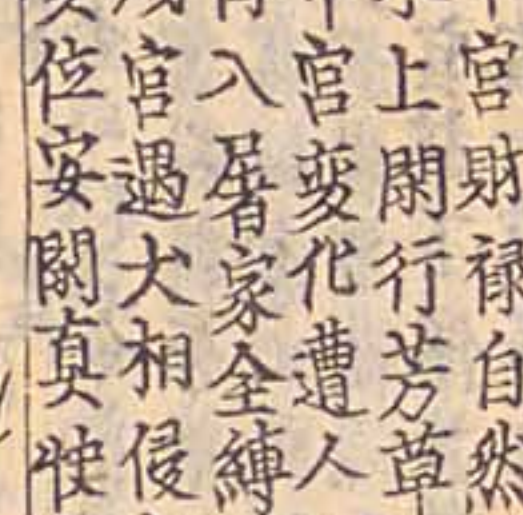 宮財禄自然
上閑行芳草
宮変化遭人
入屠家全縛
宮遇犬相侵
位安閑真快